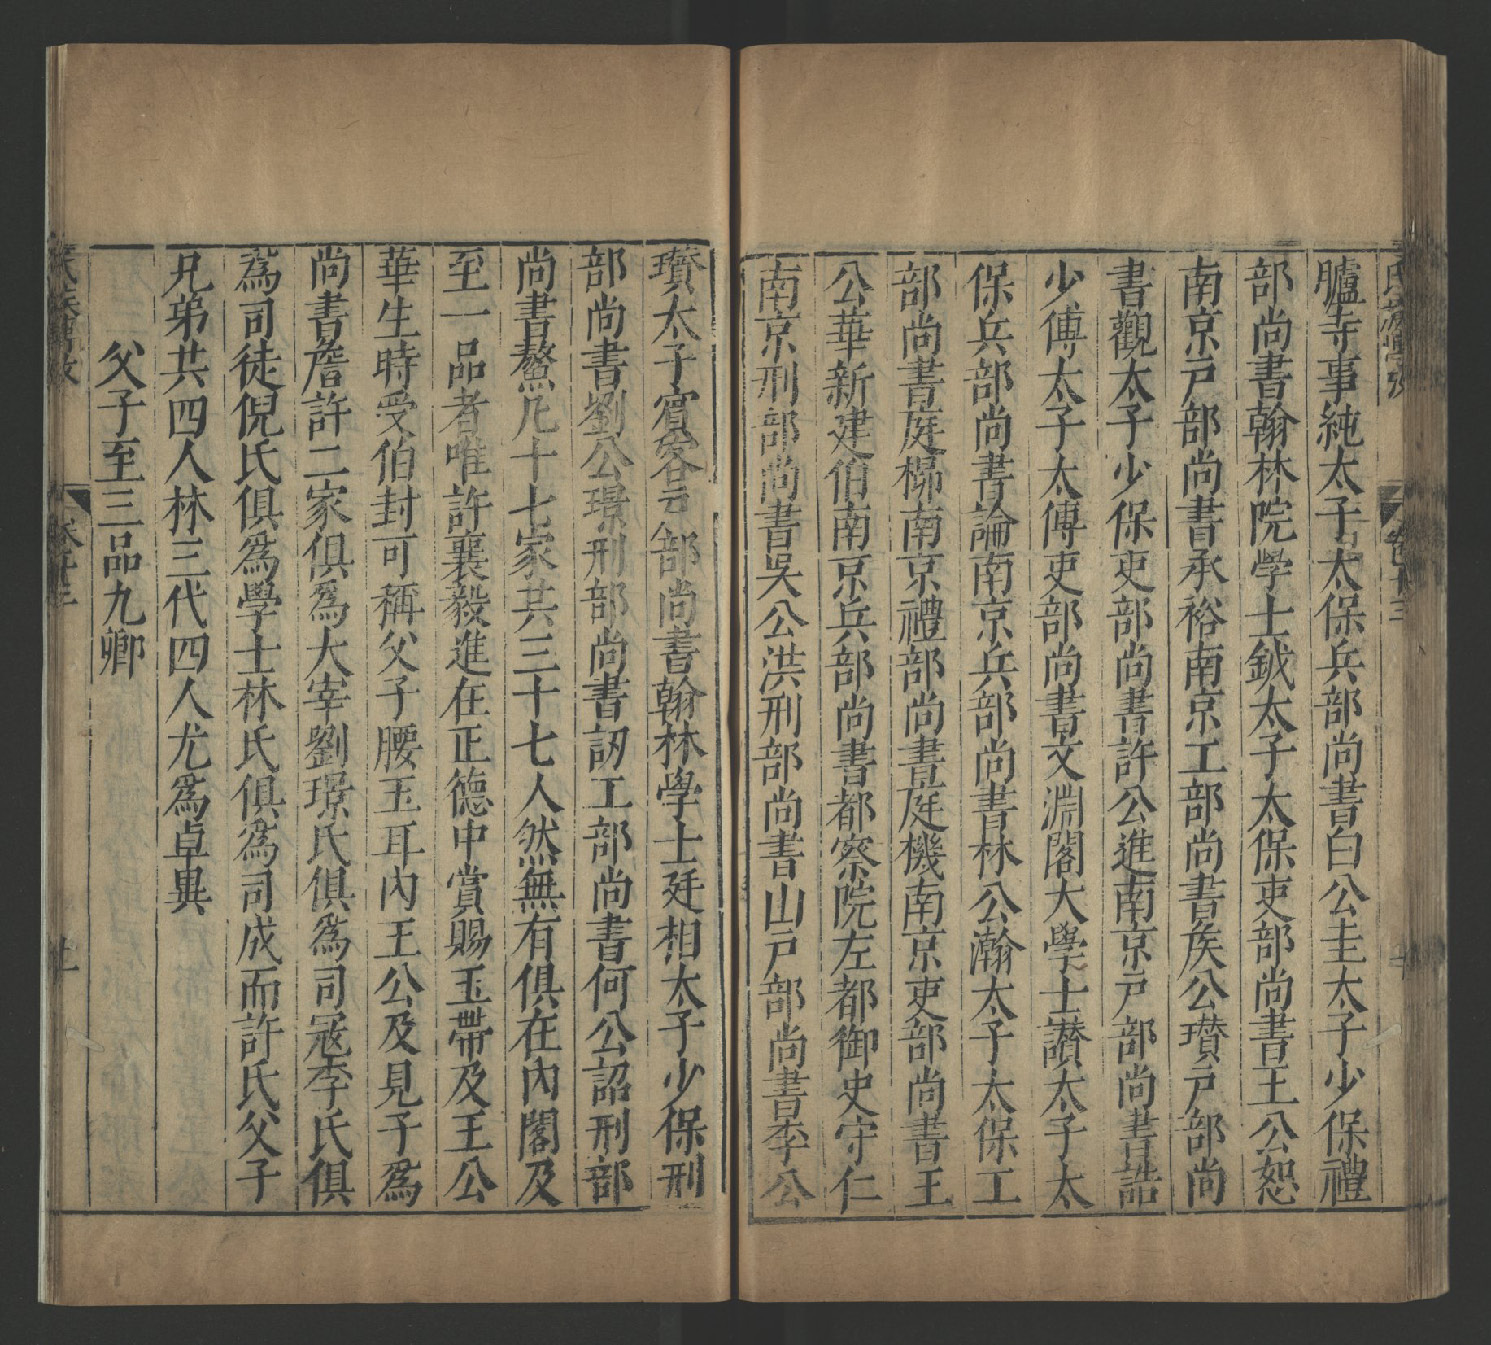 臚寺事純太子太保兵部尚書白公圭太子少保禮
部尚書翰林院學士鉞太子太保吏部尚書王公恕
南京戸部尚書承裕南京工部尚書矦公瓚戸部尚
書觀太子少保吏部尚書許公進南京戸部尚書誥
少傅太子太傅吏部尚書文淵閣大學士讃太子太
保兵部尚書論南京兵部尚書林公瀚太子太保工
部尚書庭㭿南京禮部尚書庭機南京吏部尚書王
公華新建伯南京兵部尚書都察院左都御史守仁
南京刑部尚書吳公洪刑部尚書山戸部尚書李公
瓚太子賓客吏部尚書翰林學士廷相太子少保刑
部尚書劉公璟刑部尚書訒工部尚書何公詔刑部
尚書鰲凡十七家共三十七人然無有俱在內閣及
至一品者唯許襄毅進在正德中賞賜玉帶及王公
華生時受伯封可稱父子腰玉耳內王公及見子爲
尚書詹許二家俱爲大宰劉璟氏俱爲司冦李氏俱
爲司徒倪氏俱爲學士林氏俱爲司成而許氏父子
兄弟共四人林三代四人尤爲卓異
父子至三品九卿